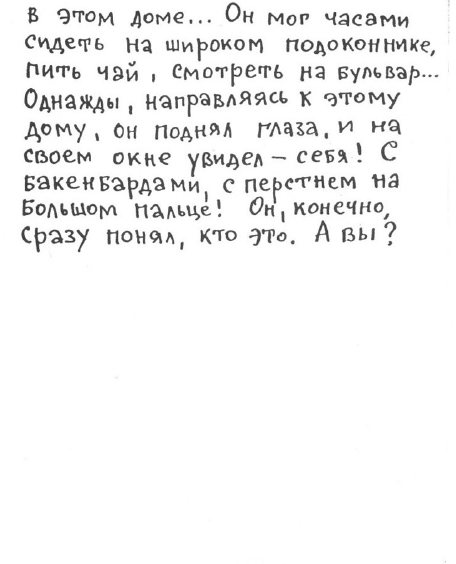 в этом доме... Он мог часами
сидеть на широком подоконнике,
пить чай, смотреть на бульвар...
Однажды, направляясь к этому
дому, он поднял глаза, и на
своем окне увидел – себя! С
бакенбардами, с перстнем на
большом пальце! Он, конечно,
сразу понял, кто это. А вы?